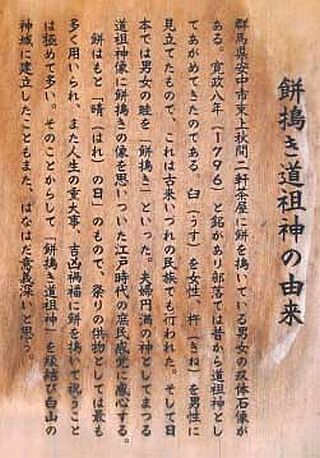 餅搗き道祖神の由来
群馬県安中市東上秋間二軒茶屋に餅を搗いている男女の双体石像が
ある。寛政八年(1796)と銘があり部落では昔から道祖神とし
てあがめてきたのである。臼(うす)を女性、杵(きね)を男性に
見立てたもので、これは古来いづれの民族でも行われた。そして日
本では男女の睦を「餅搗き」といった。夫婦円満の神としてまつる
道祖神像に餅搗きの像を思いついた江戸時代の庶民感覚に感心する。
餅はもと「晴(はれ)の日」のもので、祭りの供物としては最も
多く用いられ、また人生の重大事、吉凶禍福に餅を搗いて祝うこと
は極めて多い。そのことからして「餅搗き道祖神」を縁結び白山の
神域に建立したこともまた、はなはだ意義深いと思う。